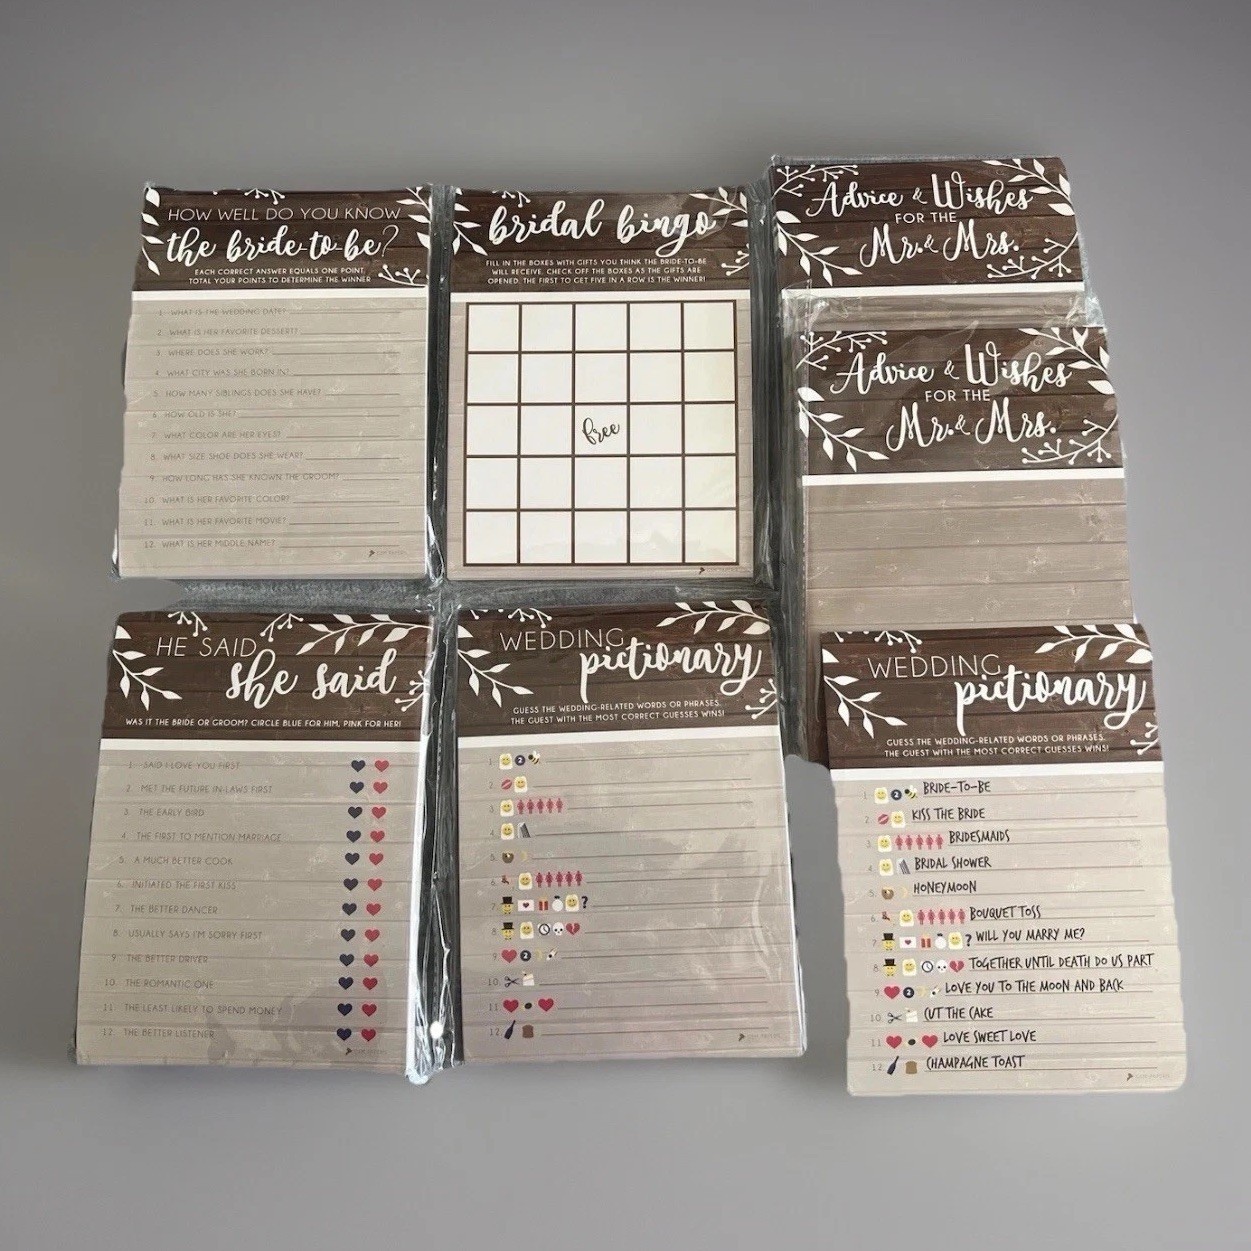 HOW WELL DO YOU KNOW
the bride-to-be?
EACH CORRECT ANSWER EQUALS ONE POINT.
TOTAL YOUR POINTS TO DETERMINE THE WINNER
1. WHAT IS THE WEDDING DATE?
2. WHAT IS HER FAVORITE DESSERT?
3. WHERE DOES SHE WORK?
4. WHAT CITY WAS SHE BORN IN?
5. HOW MANY SIBLINGS DOES SHE HAVE?
6. HOW OLD IS SHE?
7. WHAT COLOR ARE HER EYES?
8. WHAT SIZE SHOE DOES SHE WEAR?
9. HOW LONG HAS SHE KNOWN THE GROOM?
10. WHAT IS HER FAVORITE COLOR?
11. WHAT IS HER FAVORITE MOVIE?
12. WHAT IS HER MIDDLE NAME?
bridal bingo
FILL IN THE BOXES WITH GIFTS YOU THINK THE BRIDE-TO-BE
WILL RECEIVE. CHECK OFF THE BOXES AS THE GIFTS ARE
OPENED. THE FIRST TO GET FIVE IN A ROW IS THE WINNER!
free
Advice & Wishes
FOR THE
Mr. & Mrs.
Advice & Wishes
FOR THE
Mr. & Mrs.
HE SAID
she said
WAS IT THE BRIDE OR GROOM? CIRCLE BLUE FOR HIM, PINK FOR HER!
1. SAID I LOVE YOU FIRST
2. MET THE FUTURE IN-LAWS FIRST
3. THE EARLY BIRD
4. THE FIRST TO MENTION MARRIAGE
5. A MUCH BETTER COOK
6. INITIATED THE FIRST KISS
7. THE BETTER DANCER
8. USUALLY SAYS I'M SORRY FIRST
9. THE BETTER DRIVER
10. THE ROMANTIC ONE
11. THE LEAST LIKELY TO SPEND MONEY
12. THE BETTER LISTENER
WEDDING
pictionary
GUESS THE WEDDING-RELATED WORDS OR PHRASES.
THE GUEST WITH THE MOST CORRECT GUESSES WINS!
1. 2
2.
3.
4.
5.
6.
7. ?
8.
9. 2
10.
11.
12.
WEDDING
pictionary
GUESS THE WEDDING-RELATED WORDS OR PHRASES.
THE GUEST WITH THE MOST CORRECT GUESSES WINS!
1. 2 BRIDE-TO-BE
2. KISS THE BRIDE
3. BRIDESMAIDS
4. BRIDAL SHOWER
5. HONEYMOON
6. BOUQUET TOSS
7. ? WILL YOU MARRY ME?
8. TOGETHER UNTIL DEATH DO US PART
9. 2 LOVE YOU TO THE MOON AND BACK
10. CUT THE CAKE
11. LOVE SWEET LOVE
12. CHAMPAGNE TOAST